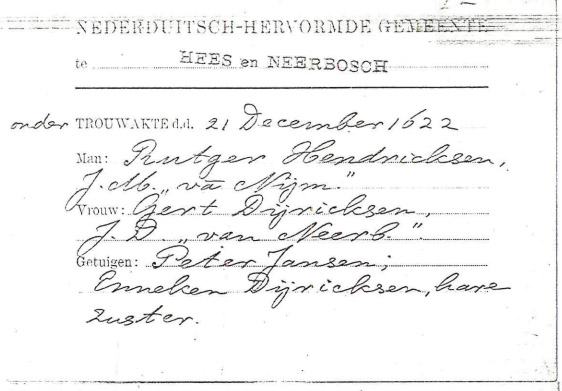 NEDERDUITSCH-HERVORMDE GEMEENTE
te HEES en NEERBOSCH
onder TROUWAKTE d.d. 21 December 1622
Man: Rutger Hendricksen,
J.M. „va Nijm."
Vrouw: Gert Dijricksen,
J.D. „van Neerb".
Getuigen: Peter Jansen;
Enneken Dijricksen, hare
zuster.